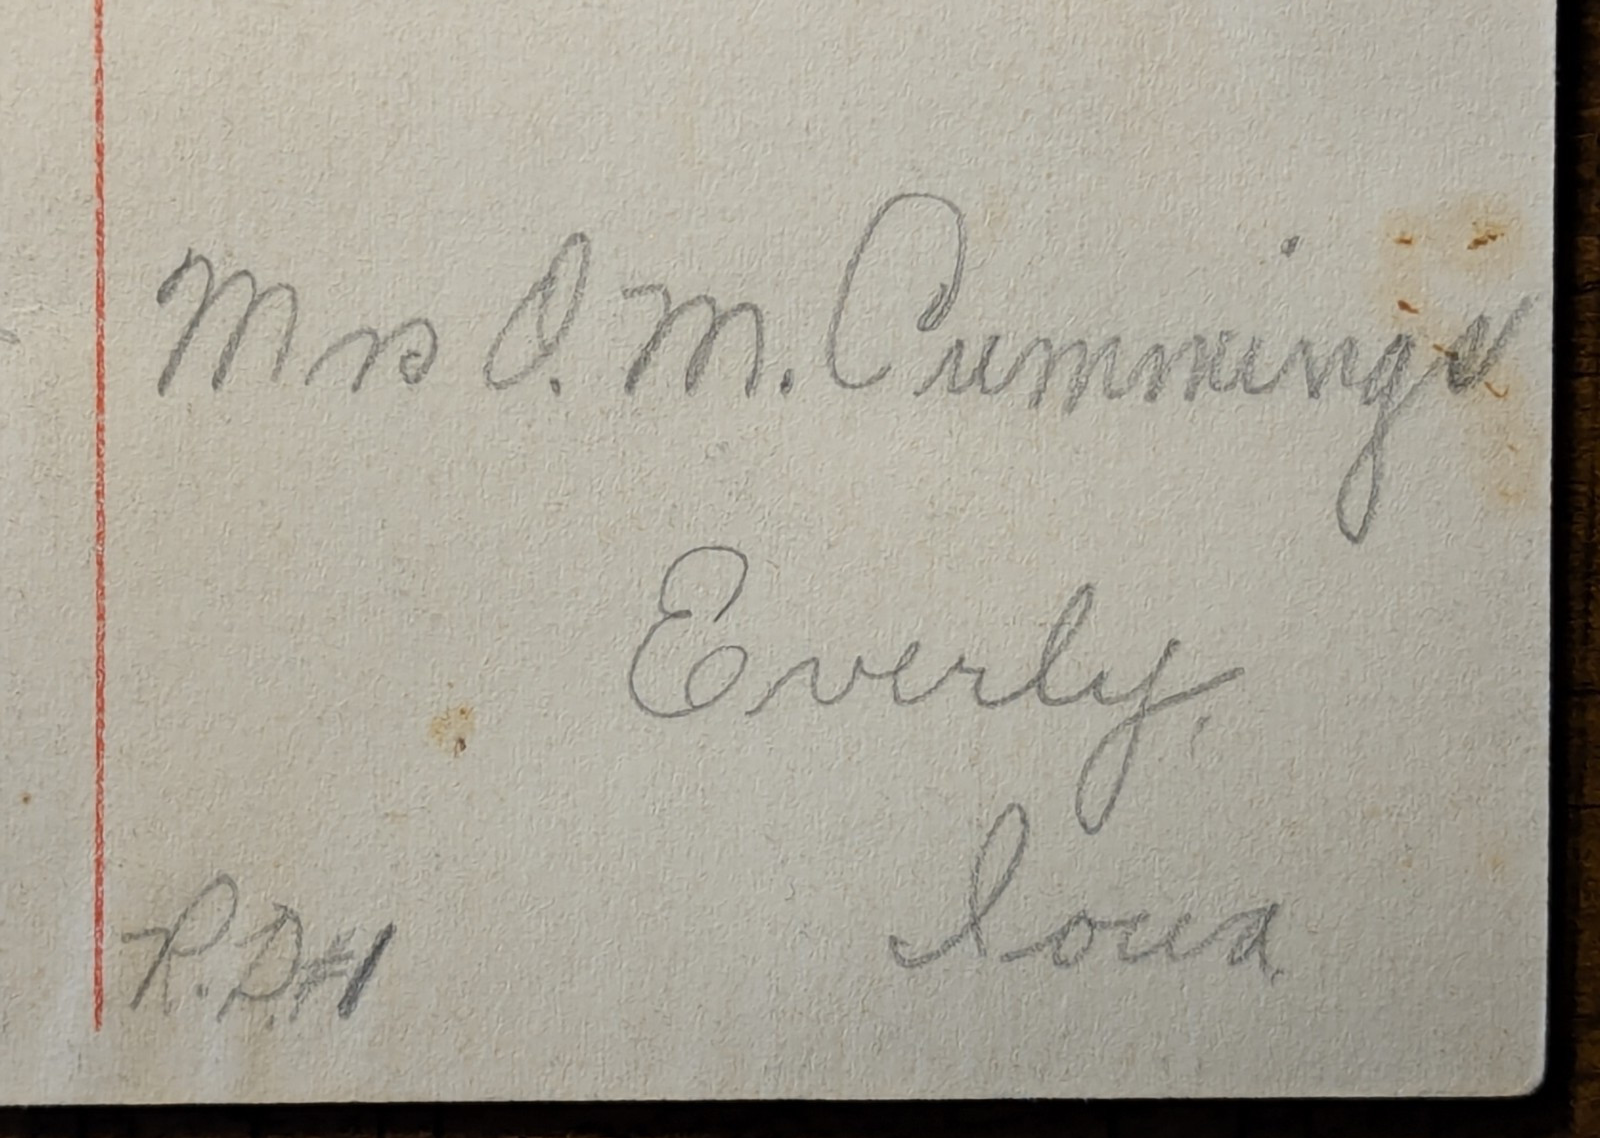 Mrs O. M. Cummings
Everly,
Iowa
R.D.#1